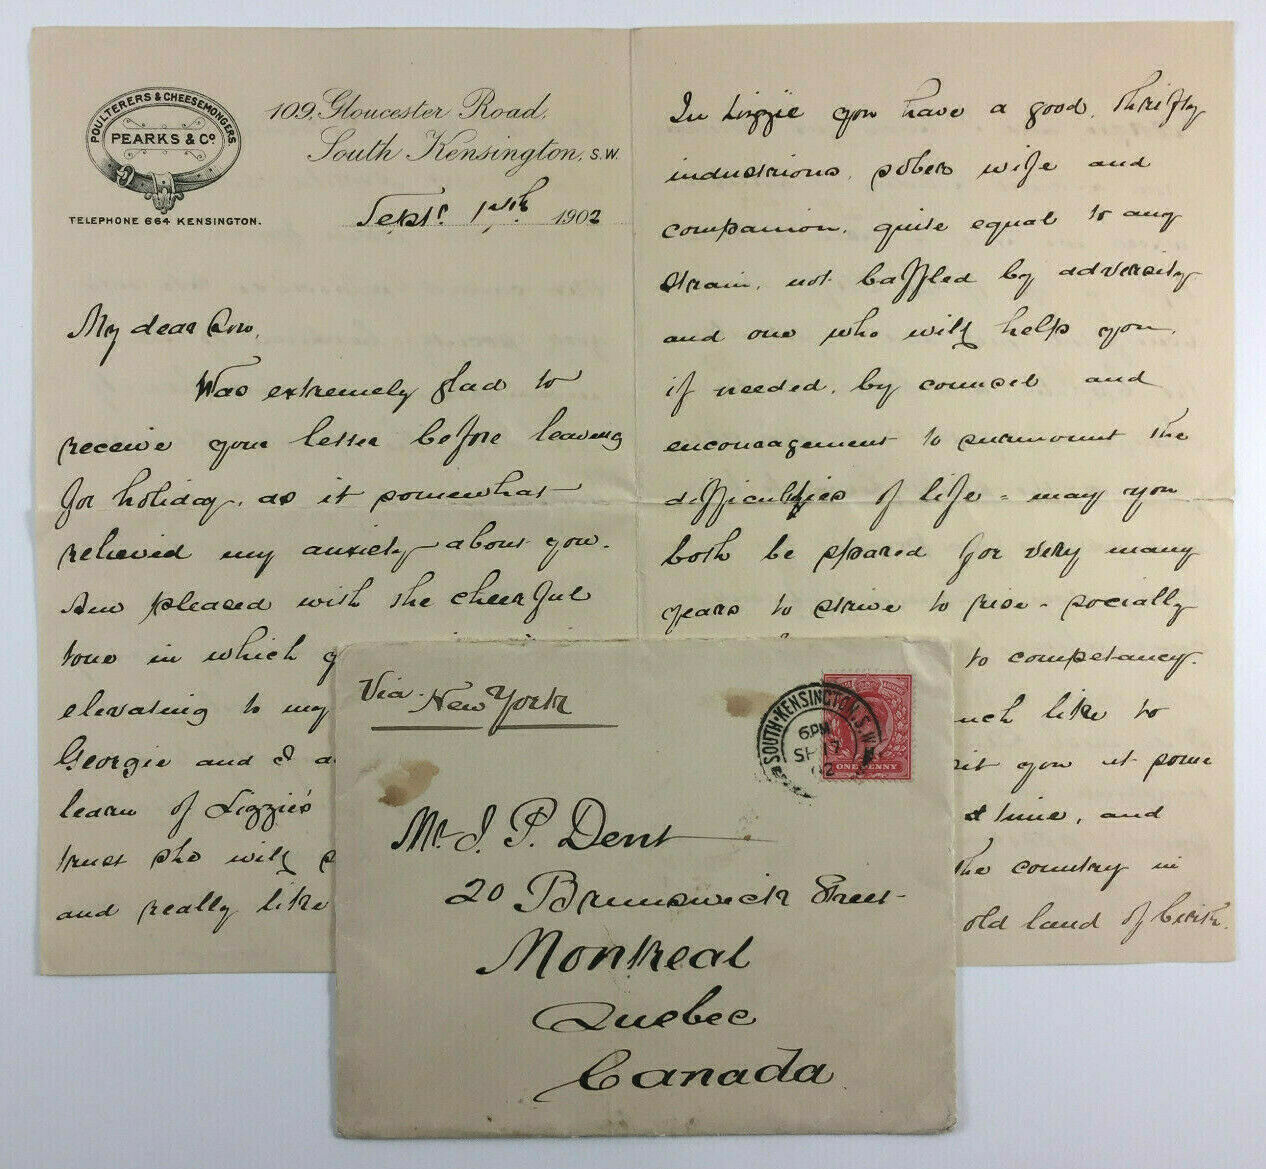 POULTERERS & CHEESEMONGERS
PEARKS & Co
TELEPHONE 664 KENSINGTON.
109, Gloucester Road,
South Kensington, S.W.
Septr 17th 1902
My dear Son,
Was extremely glad to
receive your letter before leaving
for holiday, as it somewhat
relieved my anxiety about you.
Am pleased with the cheerful
tone in which
elevating to my
Georgie and I
learn of Lizzie's
trust she will
and really like
In Lizzie you have a good, thrifty
industrious, sober wife and
companion, quite equal to any
strain, not baffled by adversity
and one who will help you,
if needed, by counsel and
encouragement to surmount the
difficulties of life - may you
both be spared for very many
years to strive to rise - socially
to competancy.
like to
you at some
time, and
the country in
old land of birth.
Via New York
SOUTH-KENSINGTON.S.W.
6PM
SP 17
02
ONE PENNY
Mr. J. P. Dent
20 Brunswick Street
Montreal
Quebec
Canada